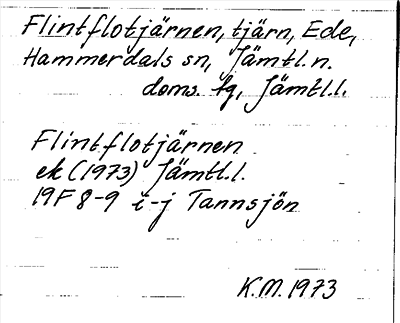 Flintflotjärnen, tjärn, Ede,
Hammerdals sn, Jämtl. n.
doms. tg, Jämtl. l.
Flintflotjärnen
ek (1973) Jämtl. l.
19F 8-9 i-j Tannsjön
K.M. 1973